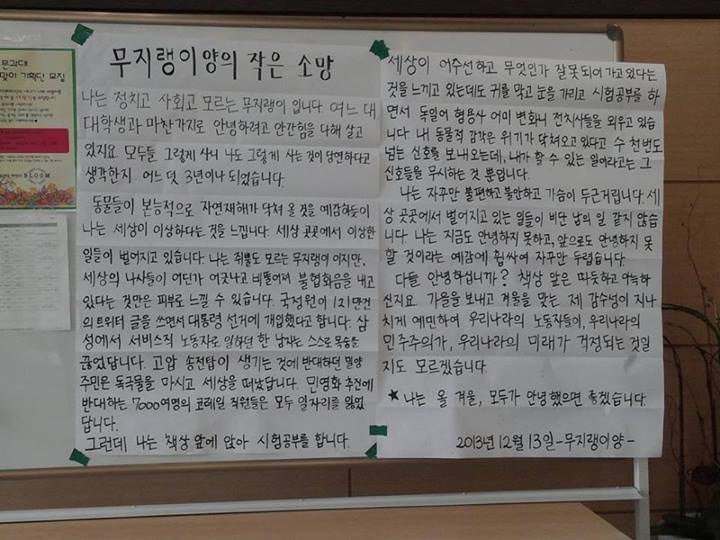 문과대
맞이 기획단 모집
BLOOM
무지랭이 양의 작은 소망
나는 정치고 사회고 모르는 무지랭이 입니다. 여느 대
대학생과 마찬가지로 안녕하려고 안간힘을 다해 살고
있지요. 모두들 그렇게 사니 나도 그렇게 사는 것이 당연하다고
생각한지 어느덧 3년이나 되었습니다.
동물들이 본능적으로 자연재해가 닥쳐 올 것을 예감하듯이
나는 세상이 이상하다는 것을 느낍니다. 세상 곳곳에서 이상한
일들이 벌어지고 있습니다. 나는 쥐뿔도 모르는 무지랭이 이지만,
세상의 나사들이 어딘가 어긋나고 비뚤어져 불협화음을 내고
있다는 것만은 피부로 느낄 수 있습니다. 국정원이 121만건
의 트위터 글을 쓰면서 대통령 선거에 개입했다고 합니다. 삼
성에서 서비스직 노동자로 일하던 한 남자는 스스로 목숨을
끊었답니다. 고압 송전탑이 생기는 것에 반대하던 밀양
주민은 독극물을 마시고 세상을 떠났답니다. 민영화 추진에
반대하는 7000여명의 코레일 직원들은 모두 일자리를 잃었
답니다.
그런데 나는 책상 앞에 앉아 시험공부를 합니다.
세상이 어수선하고 무엇인가 잘못되어 가고 있다는
것을 느끼고 있는데도 귀를 막고 눈을 가리고 시험공부를 하
면서 독일어 형용사 어미 변화니 전치사들을 외우고 있습
니다. 내 동물적 감각은 위기가 닥쳐오고 있다고 수 천번도
넘는 신호를 보내오는데, 내가 할 수 있는 일이라고는 그
신호들을 무시하는 것 뿐입니다.
나는 자꾸만 불편하고 불안하고 가슴이 두근거립니다. 세
상 곳곳에서 벌어지고 있는 일들이 비단 남의 일 같지 않습
니다. 나는 지금도 안녕하지 못하고, 앞으로도 안녕하지 못
할 것이라는 예감에 휩싸여 자꾸만 두렵습니다.
다들 안녕하십니까? 책상 앞은 따듯하고 아늑하
신지요. 가을을 보내고 겨울을 맞는 제 감수성이 지나
치게 예민하여 우리나라의 노동자들이, 우리나라의
민주주의가, 우리나라의 미래가 걱정되는 것일
지도 모르겠습니다.
★ 나는 올 겨울, 모두가 안녕했으면 좋겠습니다.
2013년 12월 13일 -무지랭이양-